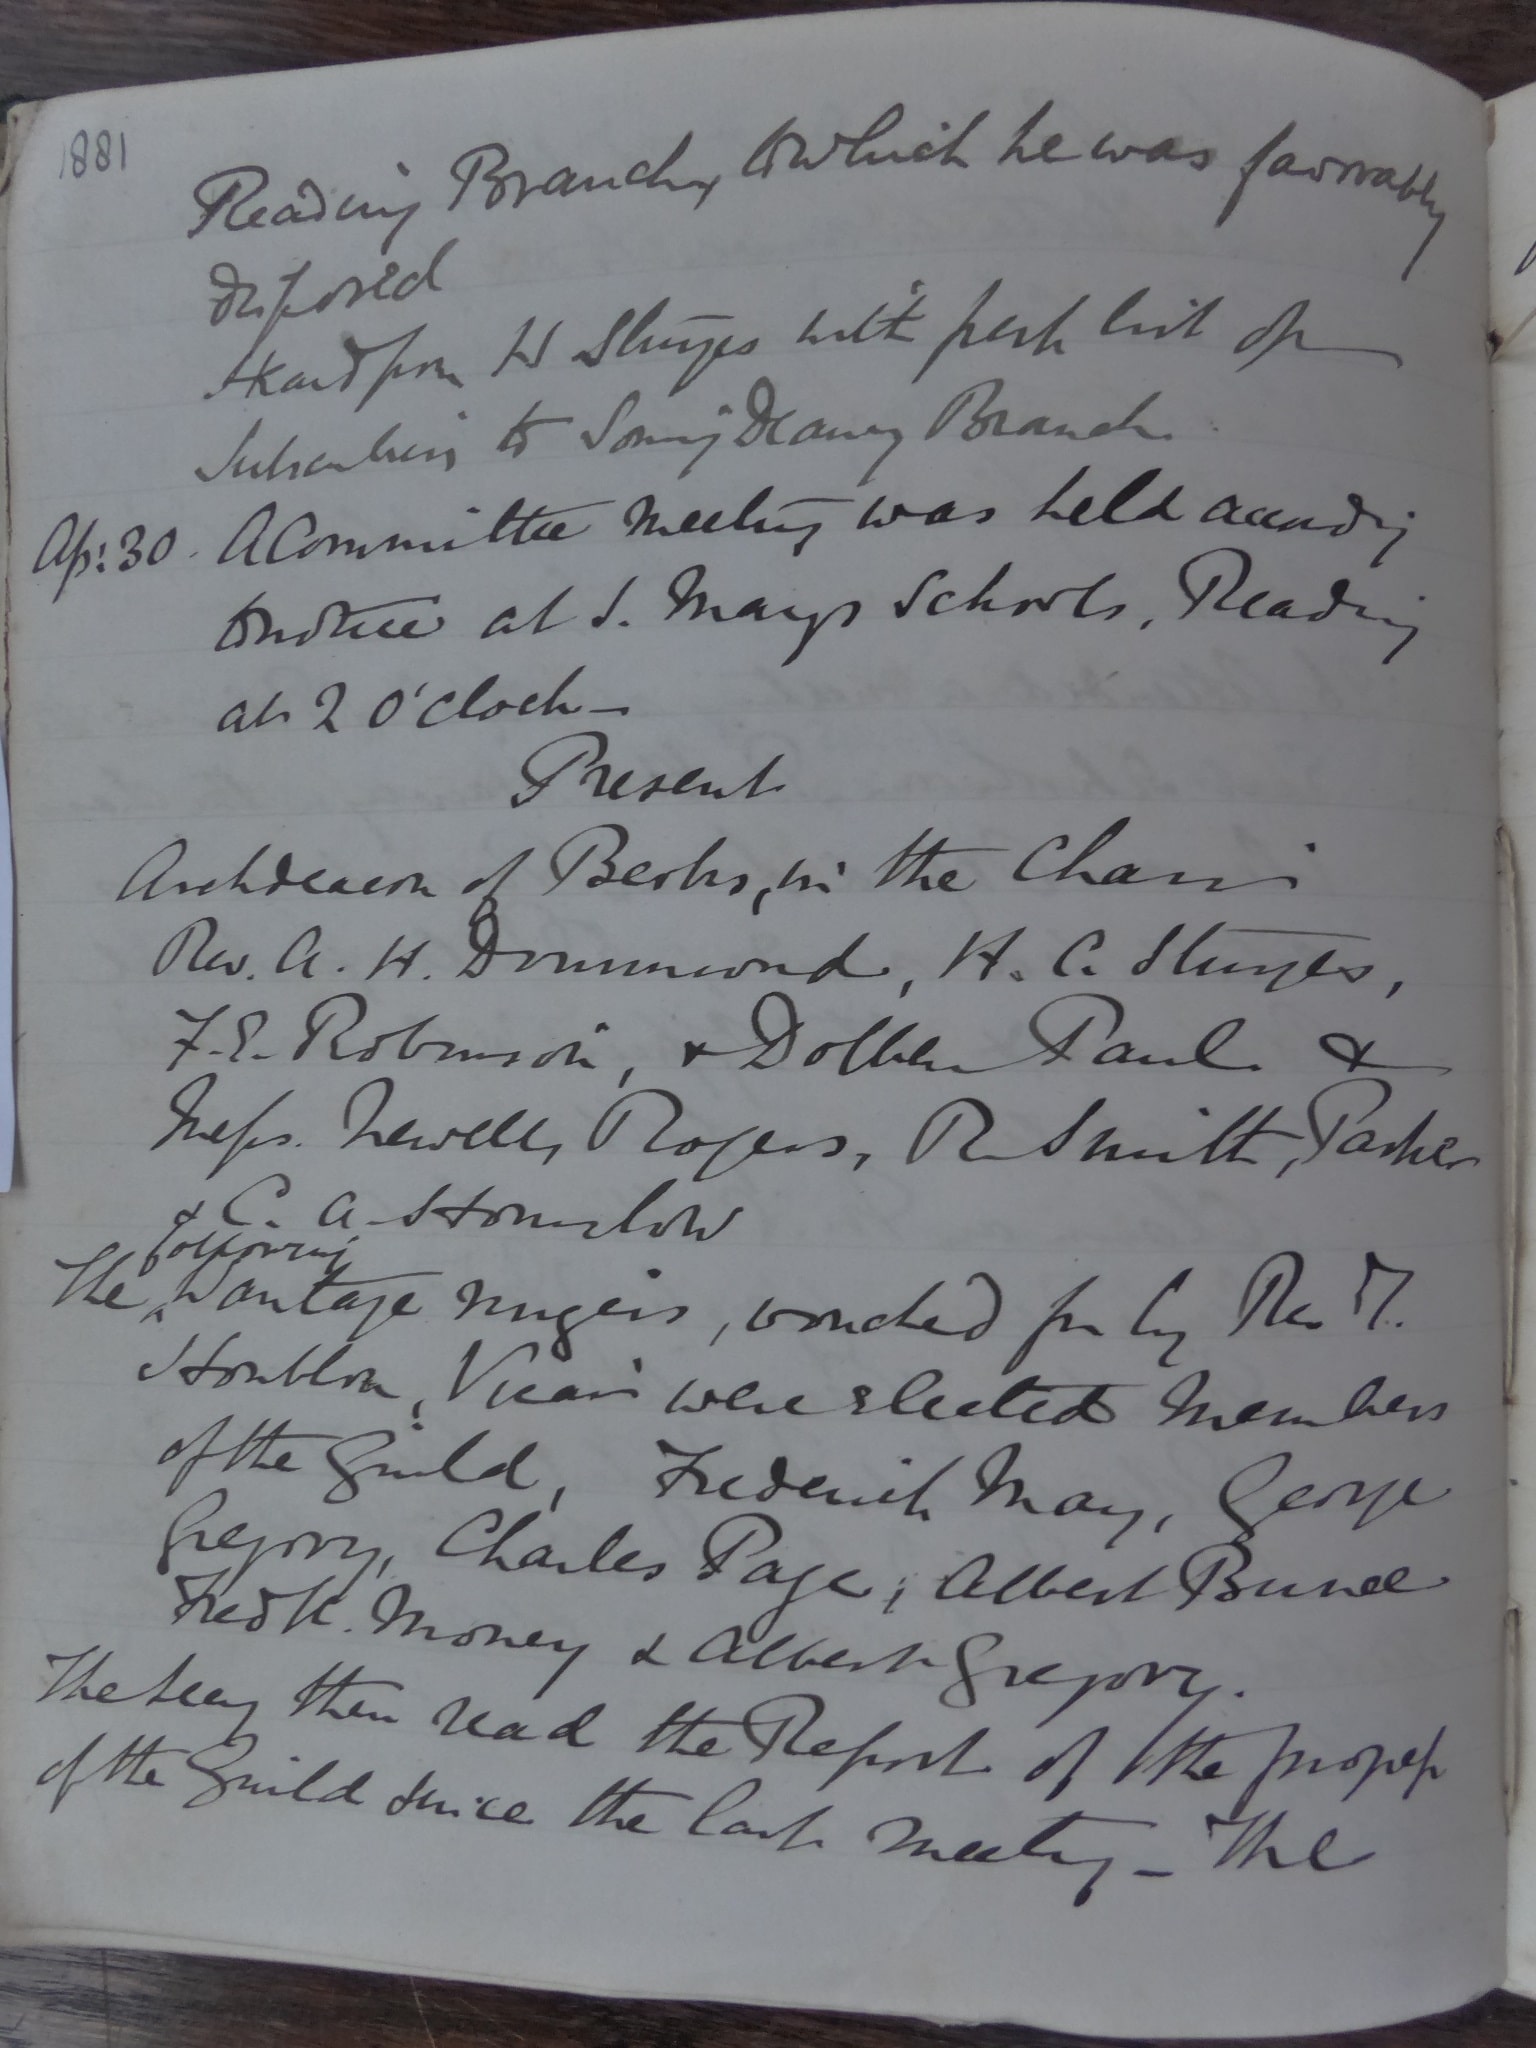 1881
Reading Branch, to which he was favorably
disposed
Heard from H Sturges with fresh list of
Subscribers to Sonning Deanery Branch.
Ap: 30. A Committee Meeting was held according
to notice at S. Mary's Schools, Reading
at 2 O'Clock—
Present
Archdeacon of Berks, in the Chair
Rev. A. H. Drummond, H. C. Sturges,
F. E. Robinson, & Dolben Paul &
Messrs. Newell, Rogers, R Smith, Parker
& C. A. Hounslow
following
The ^ Wantage ringers, vouched for by Rev T.
Houblon, Vicar were elected Members
of the Guild, Frederick May, George
Gregory, Charles Page, Albert
Fredk. Money & Albert Gregory.
The Secy then read the Report of the progress
of the Guild since the last Meeting— The